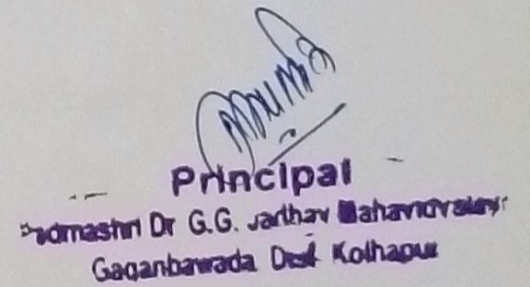 Principal
Padmashri Dr G.G. Jadhav Mahavidyalay
Gaganbawada Dist Kolhapur